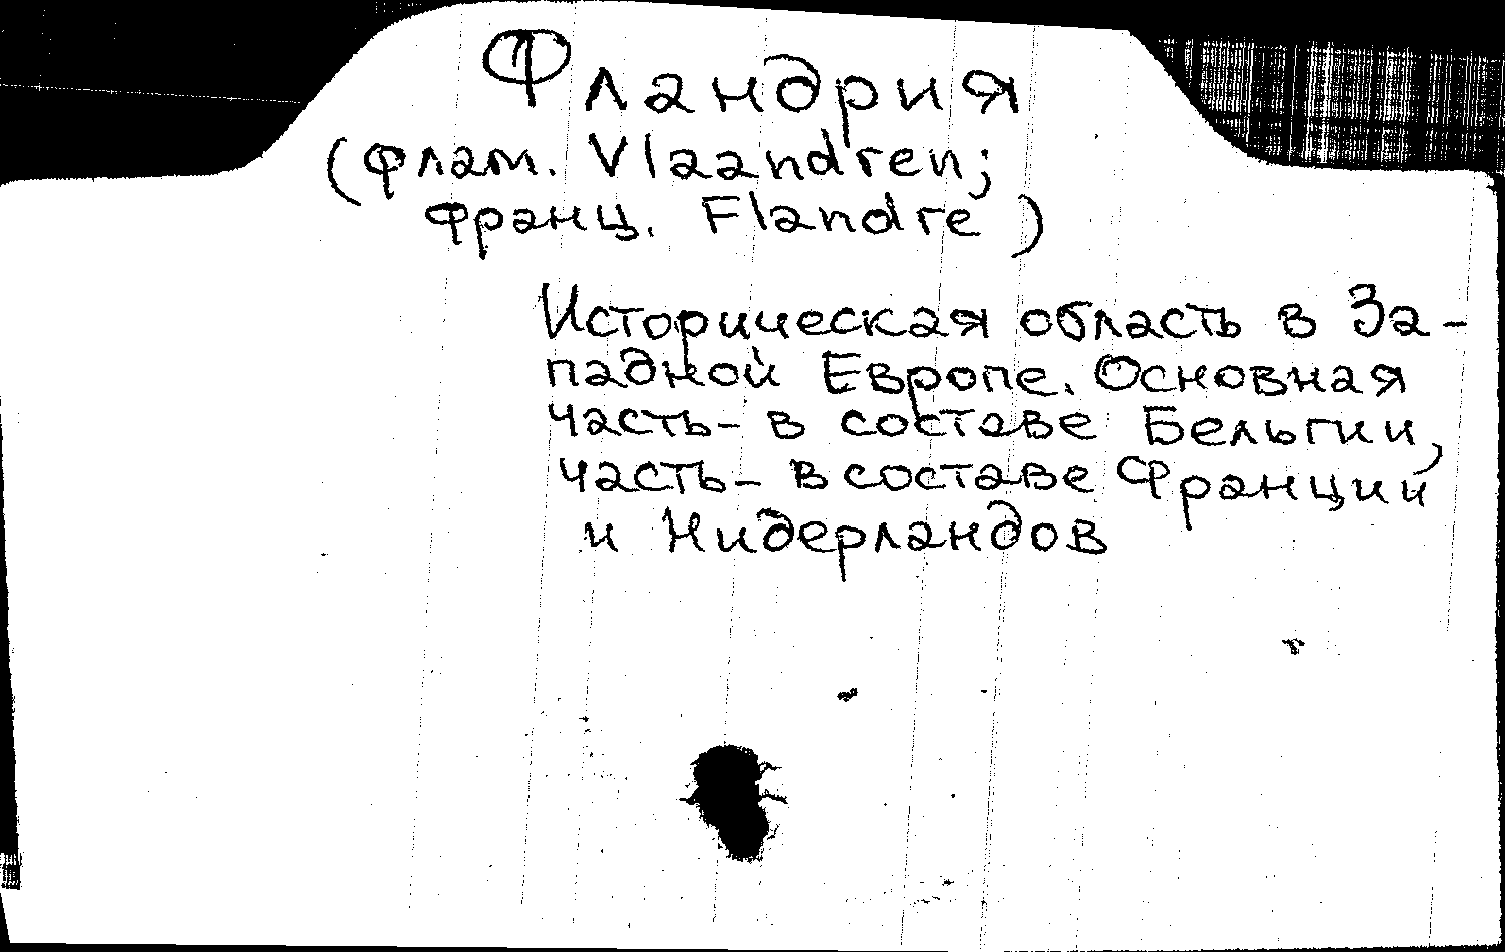 Фландрия
(флам. Vlaandren;
франц. Flandre)
Историческая область в За-
падной Европе. Основная
часть - в составе Бельгии,
часть - в составе Франции
и Нидерландов